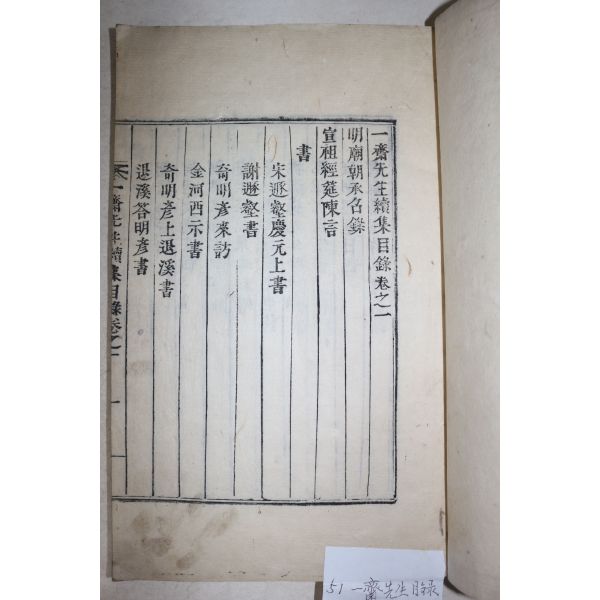 一齋先生續集目錄卷之一
明廟朝承召錄
宣祖經筵陳言
書
宋遯壑慶元上書
謝遯壑書
奇明彦來訪
金河西示書
奇明彦上退溪書
退溪答明彦書
一齋先生續集目錄卷之一
一
51 一齋先生目録